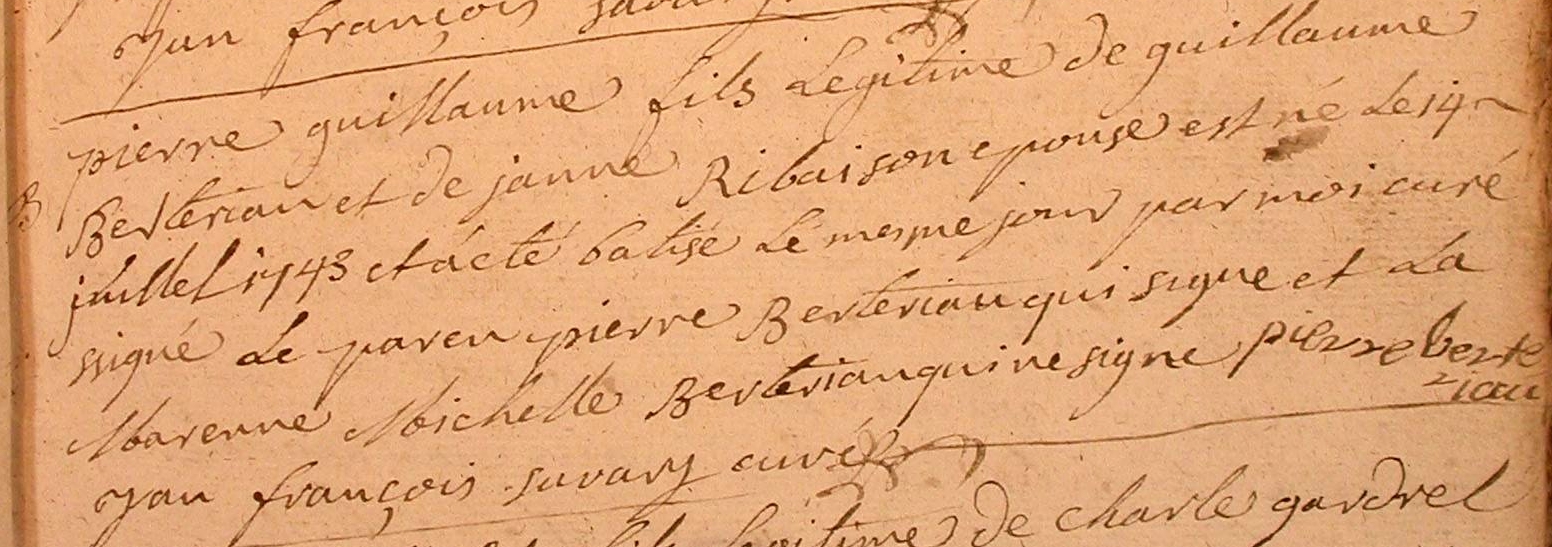 Jan françois savary
pierre guillaume fils Legitime de guillaume
B Berterian et de janne Ribaison epouse est né Le 14
juillet 1743 et a eté batisé Le mesme jour par moi curé
signé Le paren pierre Berterian qui signe et La
Marenne Michelle Berterian qui ne signe pierre berte
riau
Jan françois savary curé
fils Legitime de charle gardrel